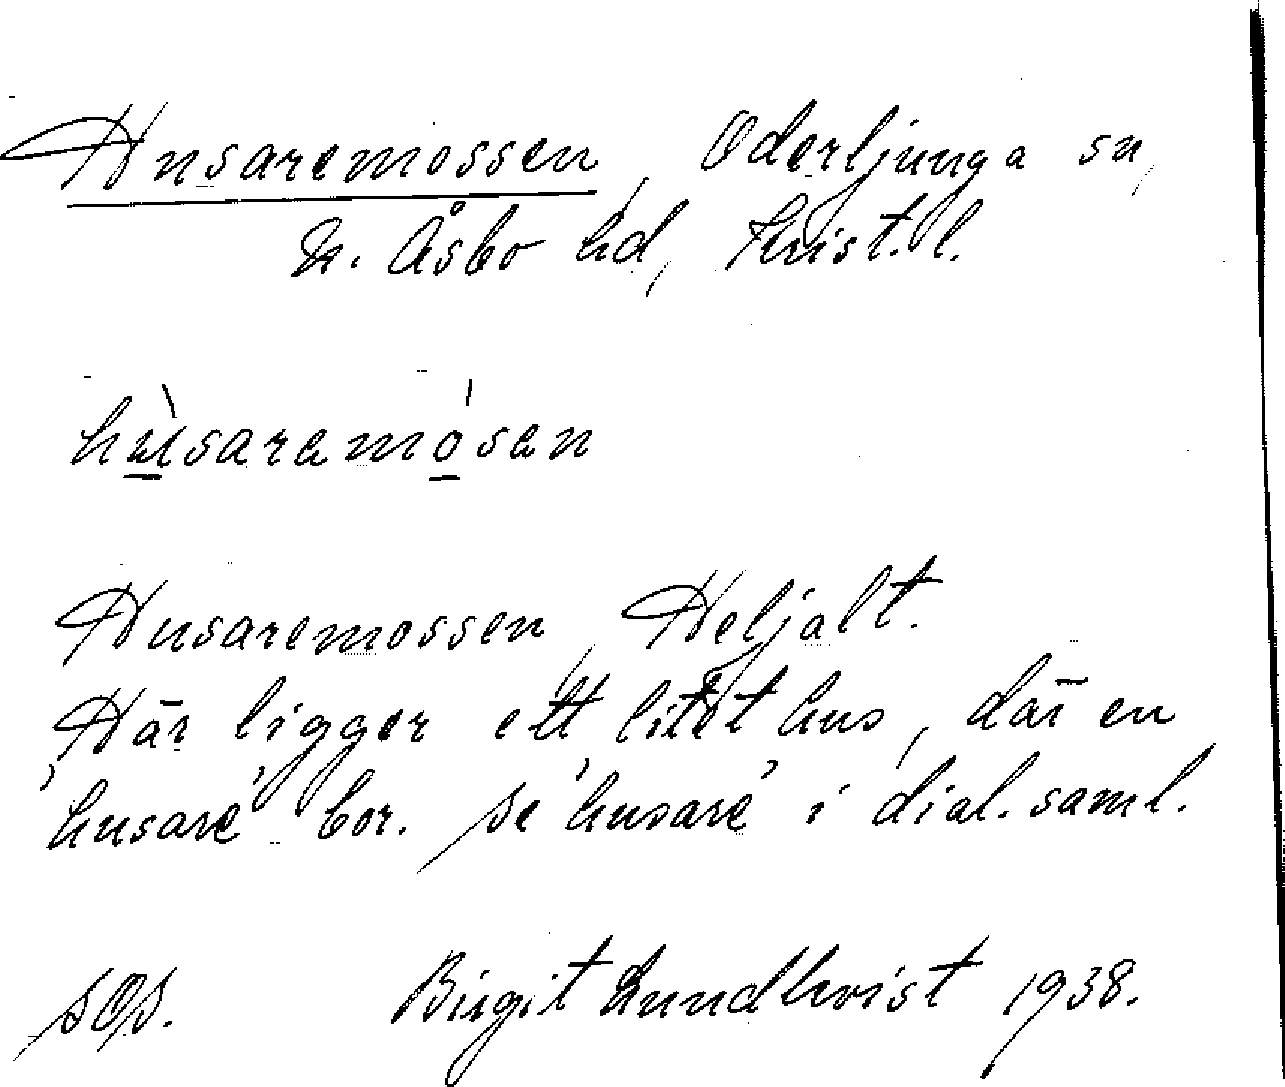 Husaremossen, Oderljunga sn,
N. Åsbo hd, Krist. l.
hùsaremósen
Husaremossen, Heljalt.
Här ligger ett litet hus, där en
'husare' bor. Se 'husare' i dial. saml.
SOS. Birgit Lundkvist 1938.